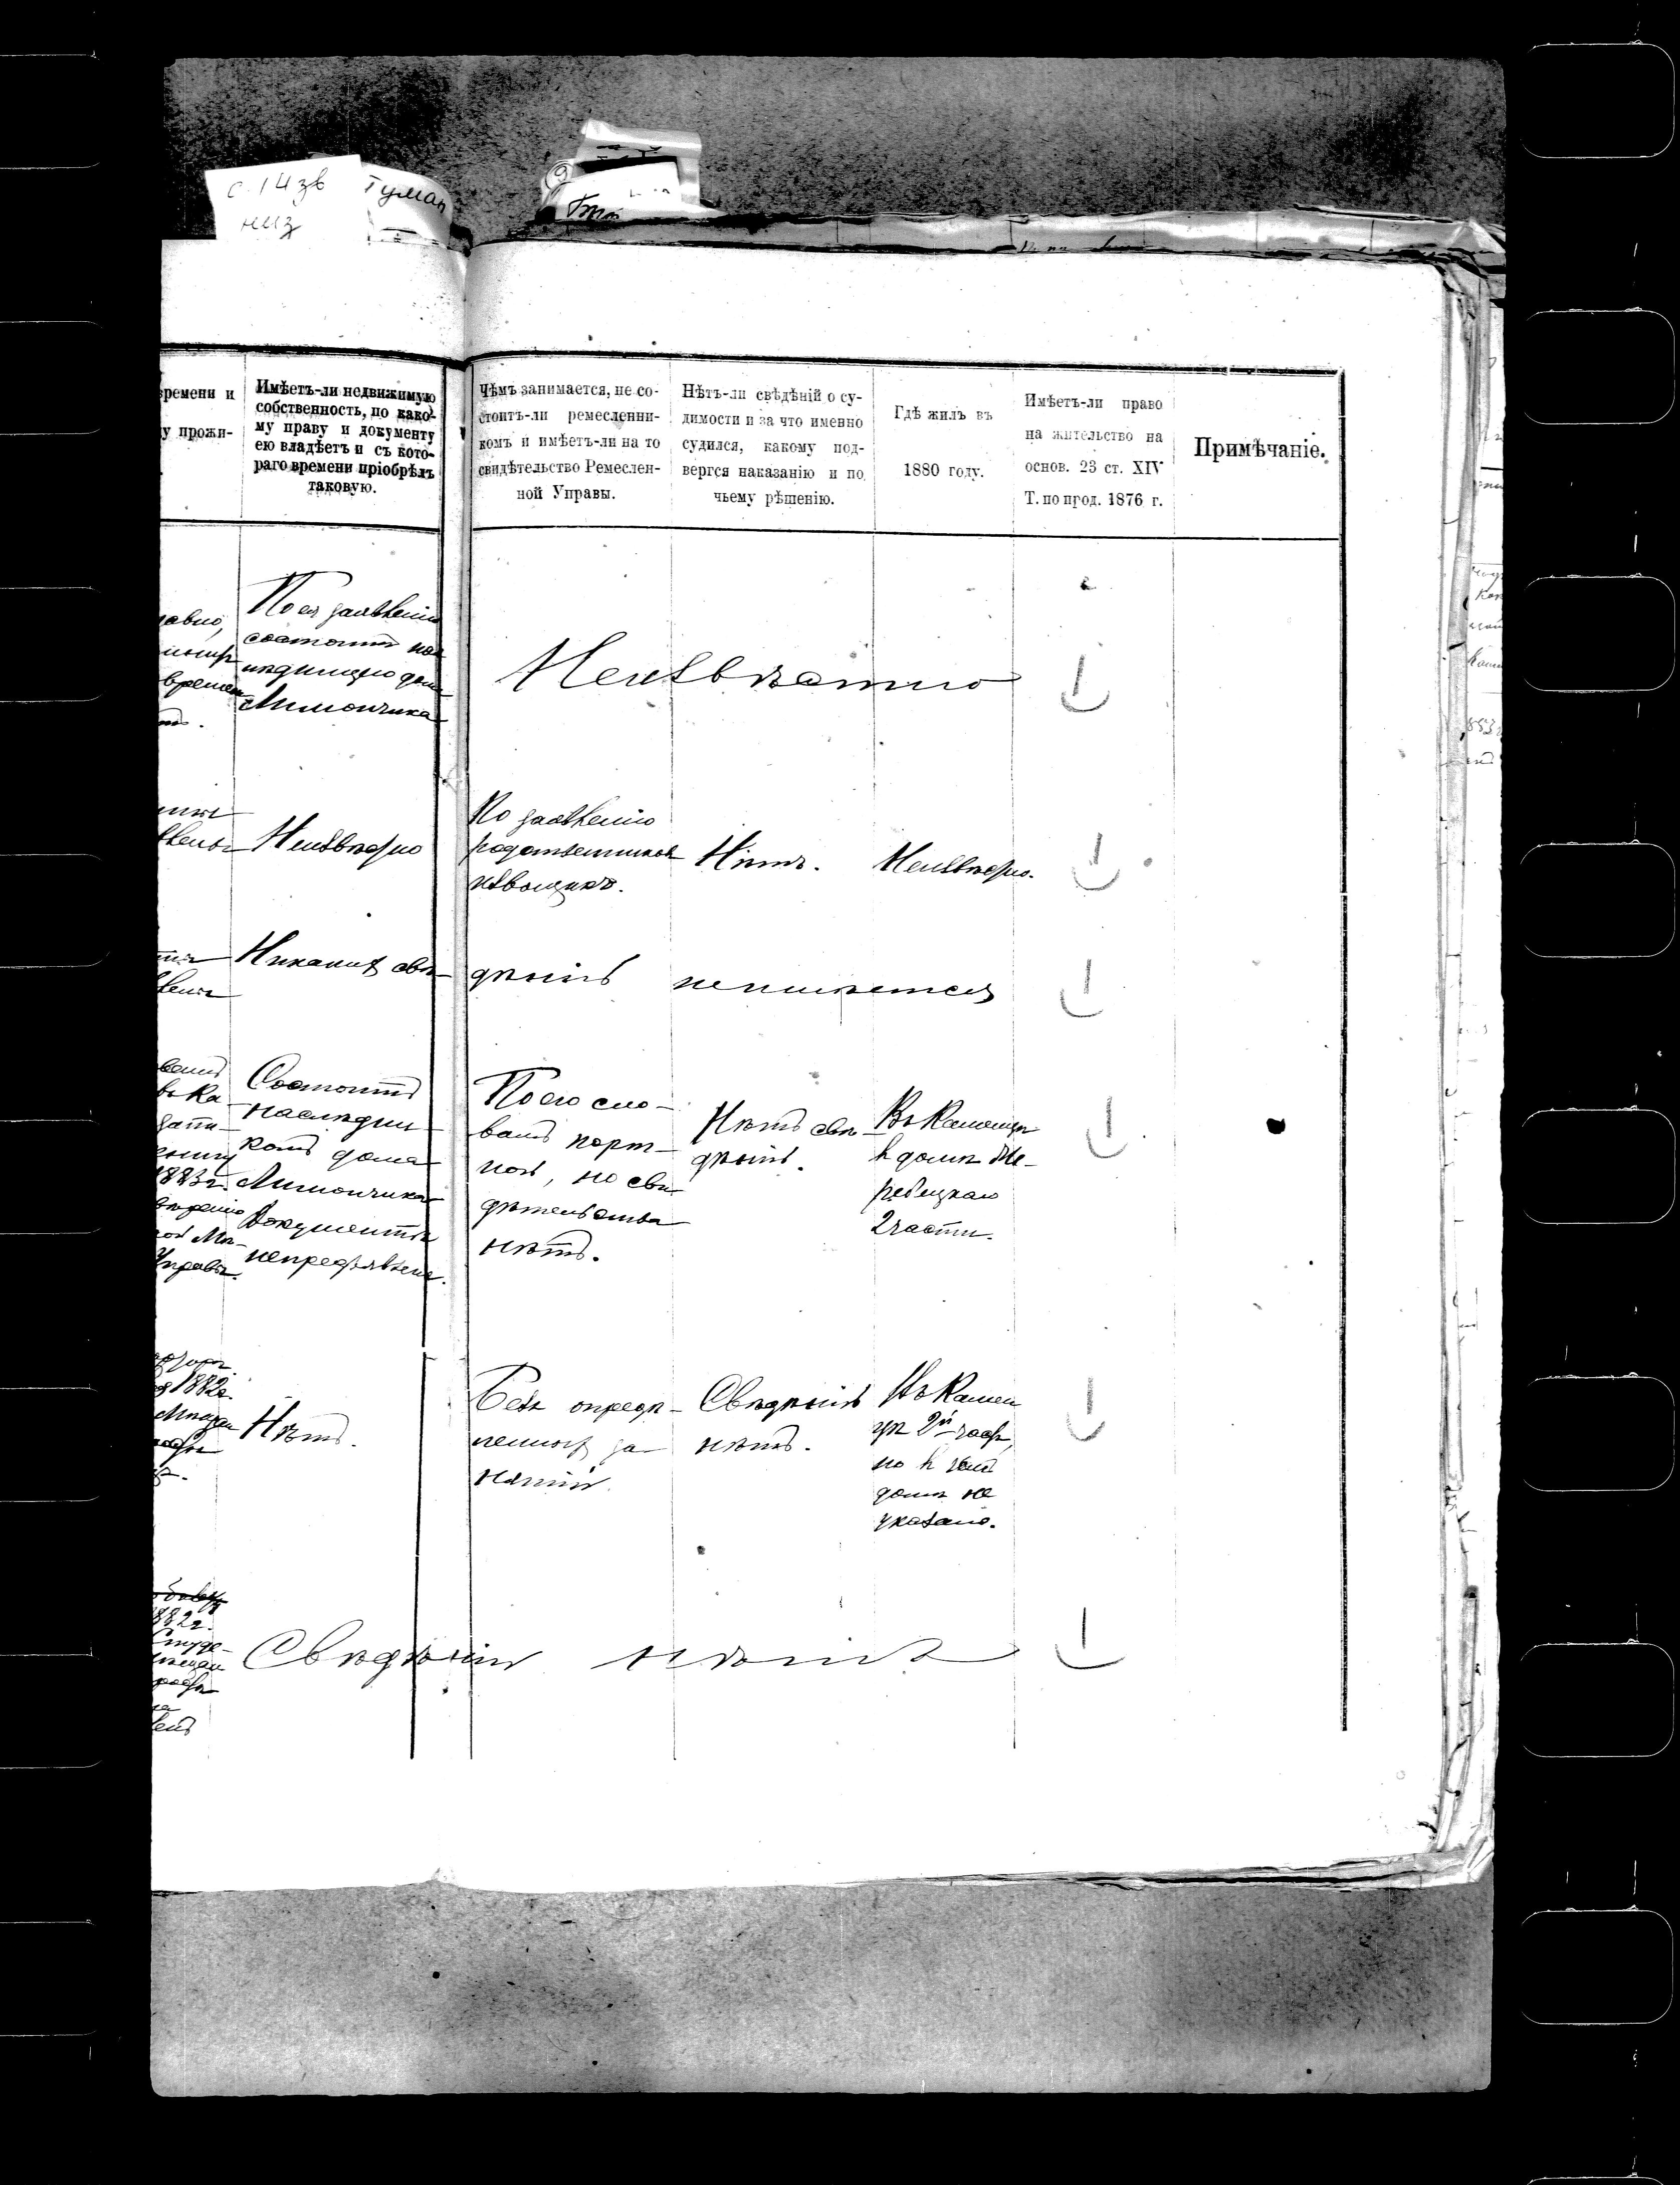 с. 14 зв
низ
Туман
9
ремени и
у прожи-
Имѣетъ-ли недвижимую
собственность, по како-
му праву и документу
ею владѣетъ и съ кото-
раго времени пріобрѣлъ
таковую.
Чѣмъ занимается, не со-
стоитъ-ли ремесленни-
комъ и имѣетъ-ли на то
свидѣтельство Ремеслен-
ной Управы.
Нѣтъ-ли свѣдѣній о су-
димости и за что именно
судился, какому под-
вергся наказанію и по
чьему рѣшенію.
Гдѣ жилъ въ
1880 году.
Имѣетъ-ли право
на жительство на
основ. 23 ст. XIV
Т. по прод. 1876 г.
Примѣчаніе.
По ея заявленію
состоитъ на
слѣдницею дома
Лимончика
Неизвѣстно
Неизвѣстно
По заявленію
родственниковъ
извощикъ.
Нѣтъ.
Неизвѣстно.
Никакихъ свѣ-
дѣній неимѣется
Состоитъ
наслѣдни-
комъ дома
Лимончика
Документъ
непредъявленъ.
По его сло-
вамъ порт-
ной, но сви
дѣтельства
нѣтъ.
Нѣтъ свѣ-
дѣній.
Въ Каменцѣ
в домѣ
2 части.
1883 г.
Управы.
1882 г.
Нѣтъ.
Безъ опредѣ-
ленныхъ за-
нятій.
Свѣдѣній
нѣтъ.
Въ Камен
цѣ 2й част,
но в чьемъ
домѣ не
указано.
882 г.
Свѣдѣній нѣтъ